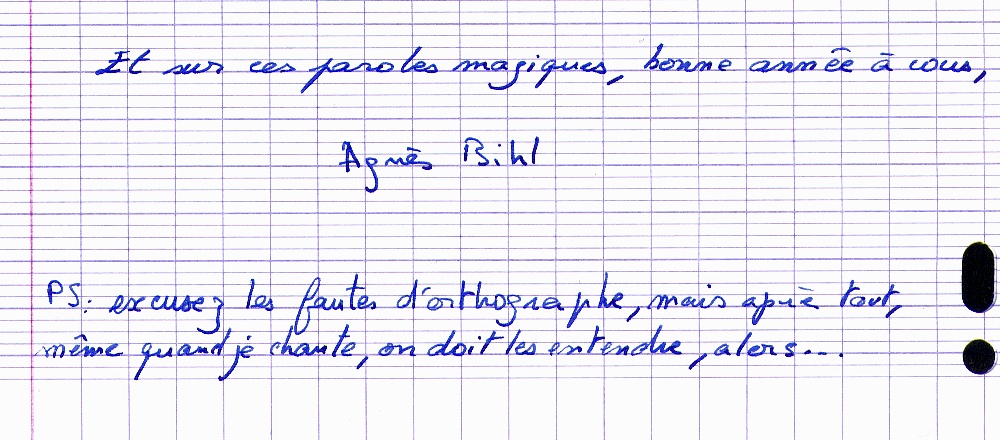 Et sur ces paroles magiques, bonne année à vous,
Agnès Bihl
PS: excusez les fautes d'orthographe, mais après tout,
même quand je chante, on doit les entendre, alors...